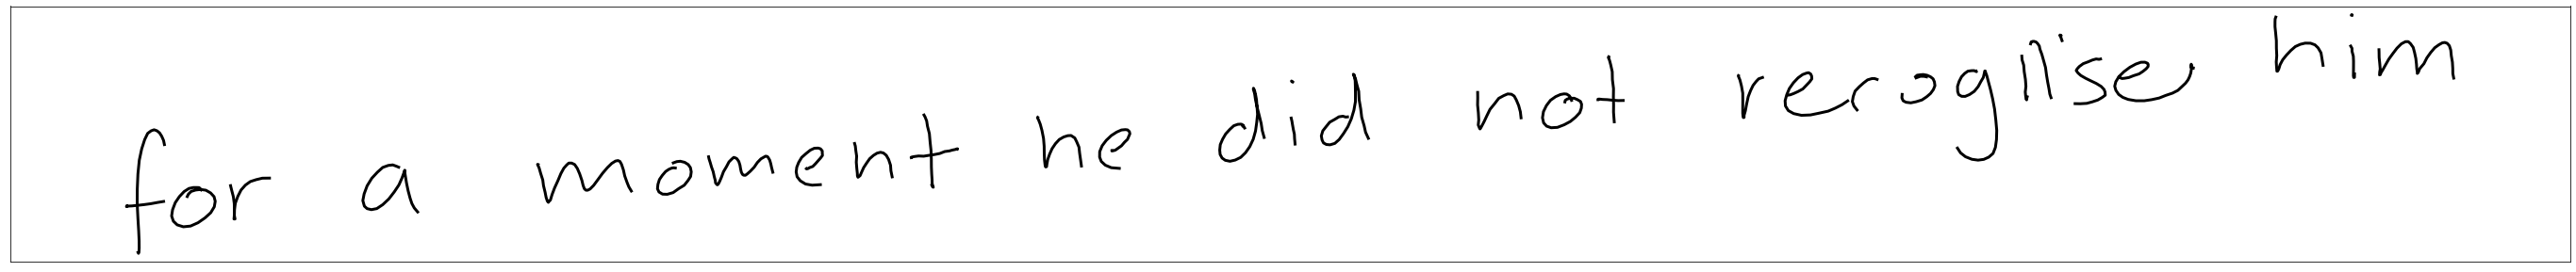 for a moment he did not recognise him